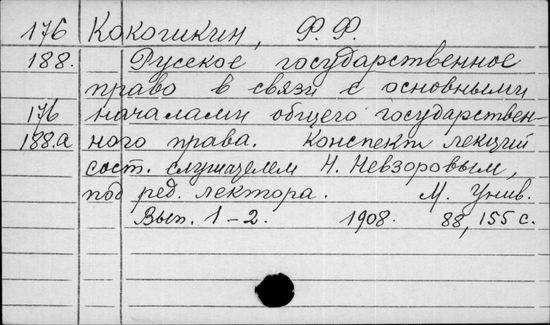 176 Кокошкин, Ф. Ф.
188. Русское государственное
право в связи с основными
176 началами общего государствен-
188.а ного права. Конспект лекций
сост. слушателем Н. Невзоровым,
под ред. лектора. М. Унив.
Вып. 1-2. 1908. 88, 155 с.